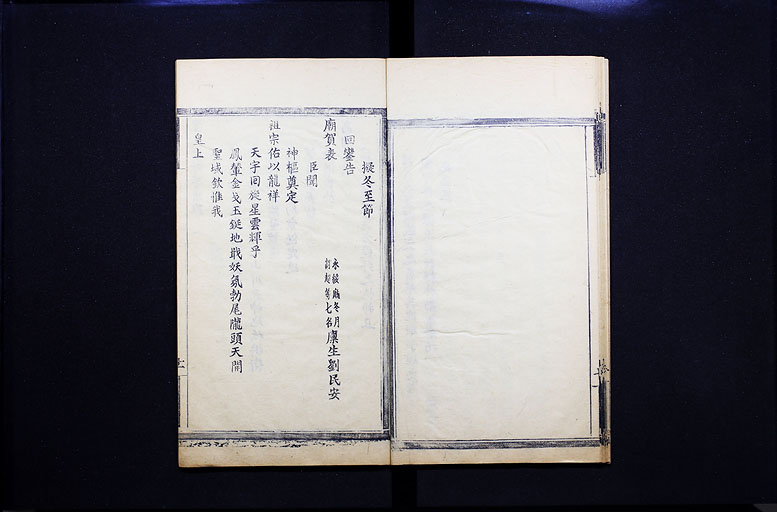 擬冬至節
回鑾告
廟賀表
永綏廳冬月
試超等七名廩生劉民安
臣聞
神樞奠定
祖宗佑以龍祥
天宇回旋星雲輝乎
鳳輦金戈玉鋋地戢妖氛勃尾隴頭天開
聖域欽惟我
皇上